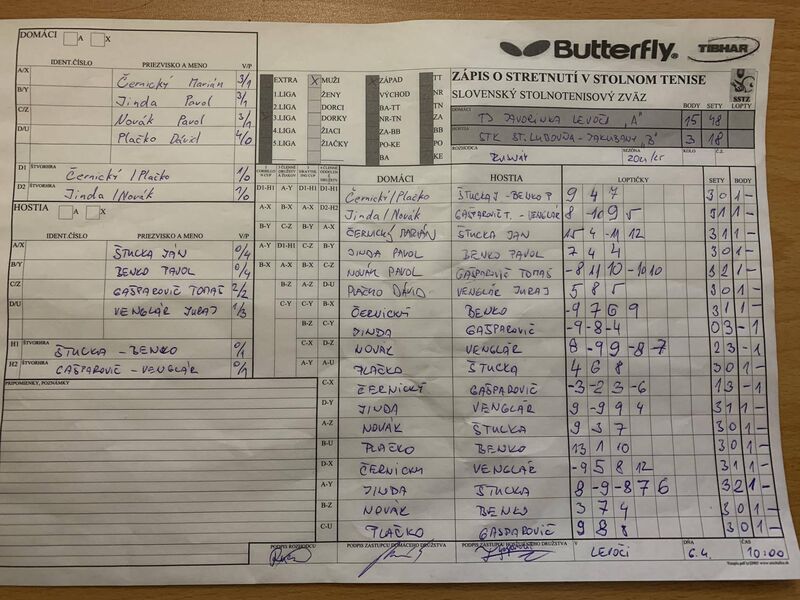 Butterfly. TIBHAR
ZÁPIS O STRETNUTÍ V STOLNOM TENISE
SLOVENSKÝ STOLNOTENISOVÝ ZVÄZ
SSTZ
DOMÁCI A X
IDENT.ČÍSLO PRIEZVISKO A MENO V/P
A/X Černický Marián 3/1
B/Y Jinda Pavol 3/1
C/Z Novák Pavol 3/1
D/U Plačko Dávid 4/0
D1 ŠTVORHRA Černický/Plačko 1/0
D2 ŠTVORHRA Jinda/Novák 1/0
HOSTIA A X
IDENT.ČÍSLO PRIEZVISKO A MENO V/P
A/X ŠTUCKA JÁN 0/4
B/Y BENKO PAVOL 0/4
C/Z GAŠPAROVIČ TOMÁŠ 2/2
D/U VENGLÁR JURAJ 1/3
H1 ŠTVORHRA ŠTUCKA - BENKO 0/1
H2 ŠTVORHRA GAŠPAROVIČ - VENGLÁR 0/1
PRIPOMIENKY, POZNÁMKY
EXTRA X MUŽI ZÁPAD TT
1.LIGA ŽENY VÝCHOD NR
2.LIGA DORCI BA-TT TN
3.LIGA DORKY NR-TN ZA
4.LIGA ŽIACI ZA-BB BB
5.LIGA ŽIAČKY PO-KE PO
BA KE
DOMÁCI TJ JAVORINKA LEVOČA "A" BODY 15 SETY 48 LOPTY
HOSTIA STK ST. ĽUBOVŇA-JAKUBANY "B" 3 18
ROZHODCA SEZÓNA KOLO Č.Z.
DOMÁCI HOSTIA LOPTIČKY SETY BODY
Černický/Plačko ŠTUCKA J - BENKO P 9 4 7 3 0 1 -
Jinda/Novák GAŠPAROVIČ T. - VENGLÁR 8 -10 9 5 3 1 1 -
ČERNICKÝ MARIÁN ŠTUCKA JÁN 15 4 -11 12 3 1 1 -
JINDA PAVOL BENKO PAVOL 7 4 4 3 0 1 -
NOVÁK PAVOL GAŠPAROVIČ TOMÁŠ -8 11 10 -10 10 3 2 1 -
PLAČKO DÁVID VENGLÁR JURAJ 5 8 5 3 0 1 -
ČERNICKÝ BENKO -9 7 6 9 3 1 1 -
JINDA GAŠPAROVIČ -9 -8 -4 0 3 - 1
NOVÁK VENGLÁR 8 -9 9 -8 -7 2 3 - 1
PLAČKO ŠTUCKA 4 6 8 3 0 1 -
ČERNICKÝ GAŠPAROVIČ -3 -2 3 -6 1 3 - 1
JINDA VENGLÁR 9 -9 9 4 3 1 1 -
NOVÁK ŠTUCKA 9 3 7 3 0 1 -
PLAČKO BENKO 13 1 10 3 0 1 -
ČERNICKÝ VENGLÁR -9 5 8 12 3 1 1 -
JINDA ŠTUCKA 8 -9 -8 7 6 3 2 1 -
NOVÁK BENKO 3 7 4 3 0 1 -
PLAČKO GAŠPAROVIČ 9 8 8 3 0 1 -
PODPIS ROZHODCU PODPIS ZÁSTUPCU DOMÁCEHO DRUŽSTVA PODPIS ZÁSTUPCU HOSŤUJÚCEHO DRUŽSTVA V LEVOČI DŇA 6.4. ČAS 10:00